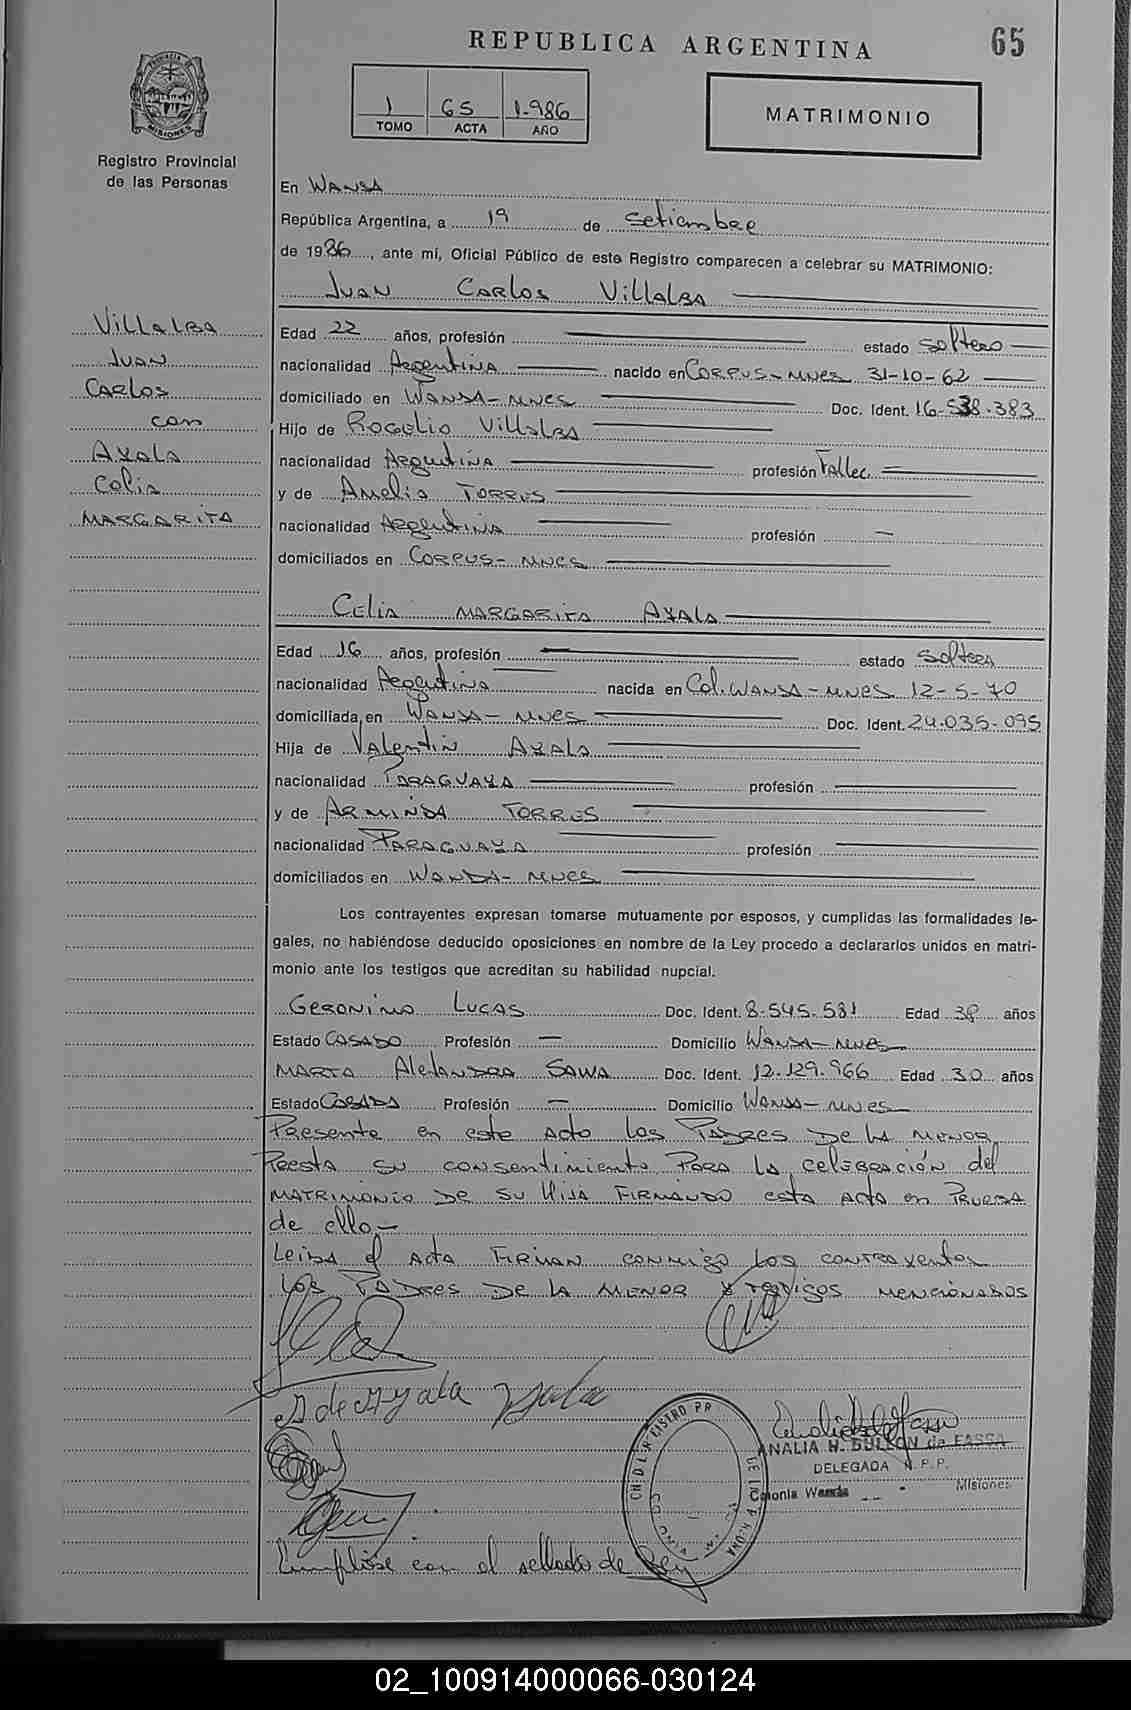 REPUBLICA ARGENTINA
65
1 65 1.986
TOMO ACTA AÑO
MATRIMONIO
PROVINCIA DE MISIONES
Registro Provincial
de las Personas
En WANDA
República Argentina, a 19 de Setiembre
de 1986, ante mí, Oficial Público de este Registro comparecen a celebrar su MATRIMONIO:
JUAN CARLOS VILLALBA
VILLALBA
JUAN
CARLOS
con
AYALA
Celia
MARGARITA
Edad 22 años, profesión — estado soltero
nacionalidad Argentina nacido en CORPUS-MNES 31-10-62
domiciliado en WANDA-MNES Doc. Ident. 16.538.383
Hijo de ROGELIO VILLALBA
nacionalidad Argentina profesión Fallec.
y de Amelia TORRES
nacionalidad Argentina profesión —
domiciliados en CORPUS-MNES
CELIA MARGARITA AYALA
Edad 16 años, profesión — estado soltera
nacionalidad Argentina nacida en Col. WANDA-MNES 12-5-70
domiciliada en WANDA-MNES Doc. Ident. 24.035.095
Hija de Valentin AYALA
nacionalidad PARAGUAYA profesión —
y de ARMINDA TORRES
nacionalidad PARAGUAYA profesión —
domiciliados en WANDA-MNES
Los contrayentes expresan tomarse mutuamente por esposos, y cumplidas las formalidades le-
gales, no habiéndose deducido oposiciones en nombre de la Ley procedo a declararlos unidos en matri-
monio ante los testigos que acreditan su habilidad nupcial.
GERONIMO LUCAS Doc. Ident. 8.545.581 Edad 38 años
Estado CASADO Profesión — Domicilio WANDA-MNES
MARTA AleJANDRA SAWA Doc. Ident. 12.129.966 Edad 30 años
Estado CASADA Profesión — Domicilio WANDA-MNES
Presente en este Acto los PADRES DE LA MENOR
Presta su consentimiento PARA LA celebRACIÓN del
MATRIMONIO DE SU HIJA FIRMANDO esta Acta en PRUEBA
de ello-
Leida el Acta FIRMAN conmigo los contrayentes
los PADRES DE LA MENOR y testigos MENCIONADOS
de Ayala Ayala
ANALIA H. DULLON de FASSA
DELEGADA R.P.P.
Colonia Wanda Misiones
Cumplióse con el sellado de Ley
02_100914000066-030124